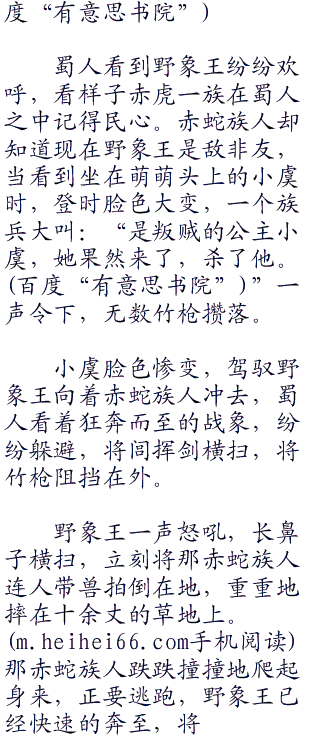 度“有意思书院”)
蜀人看到野象王纷纷欢
呼，看样子赤虎一族在蜀人
之中记得民心。赤蛇族人却
知道现在野象王是敌非友，
当看到坐在萌萌头上的小虞
时，登时脸色大变，一个族
兵大叫：“是叛贼的公主小
虞，她果然来了，杀了他。
(百度“有意思书院”)”一
声令下，无数竹枪攒落。
小虞脸色惨变，驾驭野
象王向着赤蛇族人冲去，蜀
人看着狂奔而至的战象，纷
纷躲避，将闾挥剑横扫，将
竹枪阻挡在外。
野象王一声怒吼，长鼻
子横扫，立刻将那赤蛇族人
连人带兽拍倒在地，重重地
摔在十余丈的草地上。
(m.heihei66.com手机阅读)
那赤蛇族人跌跌撞撞地爬起
身来，正要逃跑，野象王已
经快速的奔至，将